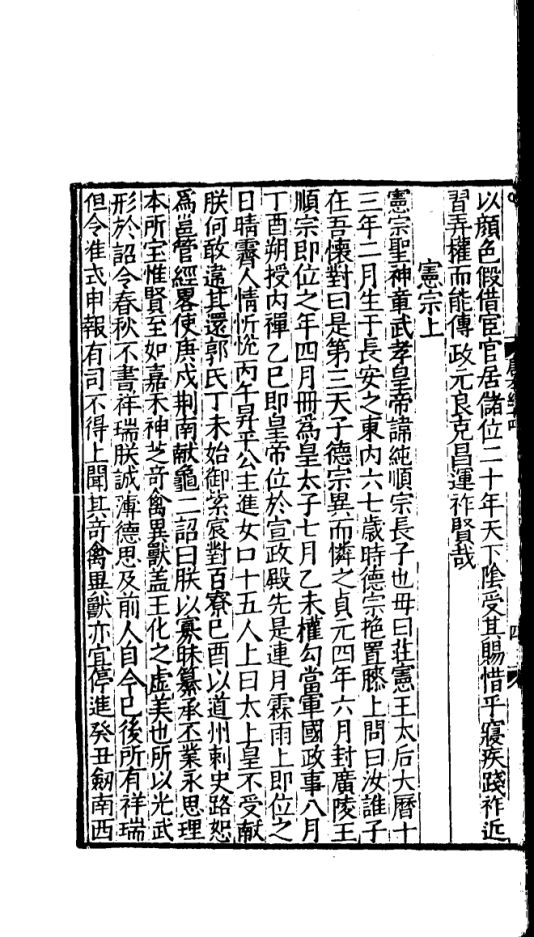 以顔色假借宦官居儲位二十年天下隂受其賜惜乎寢疾踐祚近
習弄權而能傳政元良克昌運祚賢哉
憲宗上
憲宗聖神章武孝皇帝諱純順宗長子也母曰莊憲王太后大曆十
三年二月生于長安之東内六七歳時德宗抱置膝上問曰汝誰子
在吾懷對曰是第三天子德宗異而憐之貞元四年六月封廣陵王
順宗即位之年四月冊爲皇太子七月乙未權勾當軍國政事八月
丁酉朔授内禪乙巳即皇帝位於宣政殿先是連月霖雨上即位之
日晴霽人情忻恱丙午昇平公主進女口十五人上曰太上皇不受献
朕何敢違其還郭氏丁未始御紫宸對百寮己酉以道州刺史路恕
爲邕管經畧使庚戌荆南献龜二詔曰朕以寡昧纂承丕業永思理
本所宝惟賢至如嘉禾神芝竒禽異獸盖王化之虚美也所以光武
形於詔令春秋不書祥瑞朕誠薄德思及前人自今已後所有祥瑞
但令准式申報有司不得上聞其竒禽異獸亦宜停進癸丑劒南西